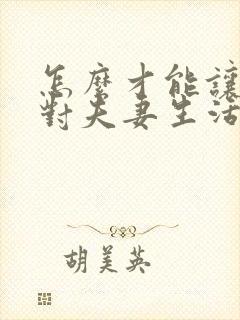 怎麼才能讓
對夫妻生活
胡美英